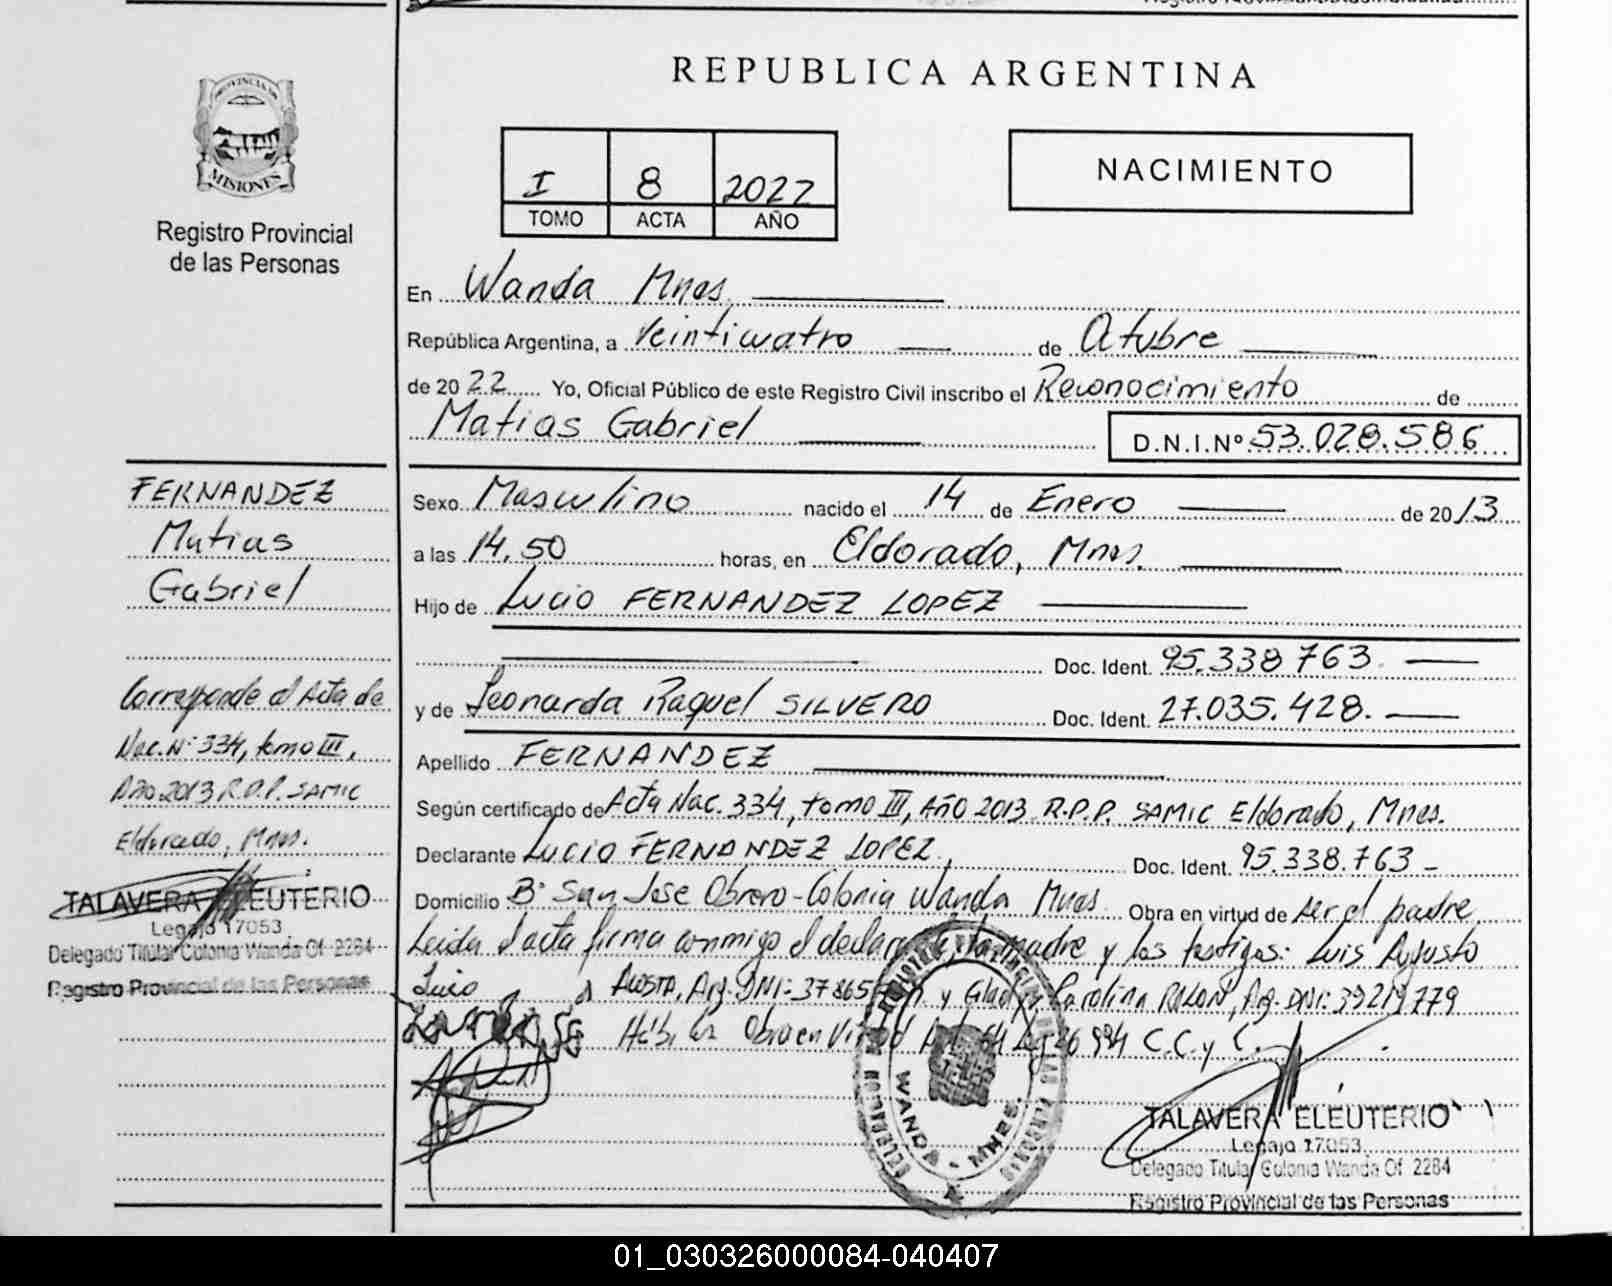 PROVINCIA DE
MISIONES
Registro Provincial
de las Personas
REPUBLICA ARGENTINA
I 8 2022
TOMO ACTA AÑO
NACIMIENTO
En Wanda Mnes.
República Argentina, a Veinticuatro de Octubre
de 20 22 Yo, Oficial Público de este Registro Civil inscribo el Reconocimiento de
Matias Gabriel D.N.I.Nº 53.028.586
FERNANDEZ
Matias
Gabriel
Corresponde al Acta de
Nac. Nº 334, tomo III,
Año 2013 R.P.P. SAMIC
Eldorado, Mnes.
TALAVERA ELEUTERIO
Legajo 17053
Delegado Titular Colonia Wanda Of. 2284
Registro Provincial de las Personas
Sexo Masculino nacido el 14 de Enero de 20 13
a las 14.50 horas, en Eldorado, Mnes.
Hijo de Lucio FERNANDEZ LOPEZ
Doc. Ident. 95.338.763.
y de Leonarda Raquel SILVERO Doc. Ident. 27.035.428.
Apellido FERNANDEZ
Según certificado de Acta Nac. 334, tomo III, AÑO 2013 R.P.P. SAMIC Eldorado, Mnes.
Declarante Lucio FERNANDEZ LOPEZ, Doc. Ident. 95.338.763
Domicilio Bº San Jose Obrero-Colonia Wanda Mnes. Obra en virtud de ser el padre
Leida el acta firma conmigo el madre y los testigos: Luis Augusto
Lucio Acosta, Arg. DNI: 37865 y Gladys Carolina Arg. DNI:
Hábiles Obra en C.C. y C.
WANDA - MNES.
TALAVERA ELEUTERIO
Legajo 17053
Delegado Titular Colonia Wanda Of. 2284
Registro Provincial de las Personas
01_030326000084-040407